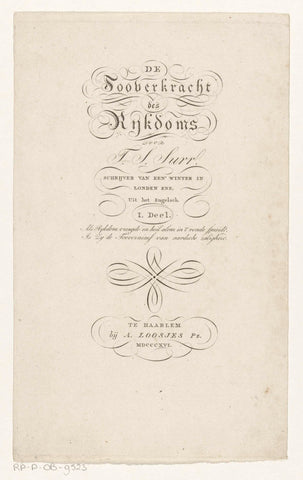 DE
Tooverkracht
des
Rijkdoms
DOOR
T. S. Surr
SCHRIJVER VAN EEN WINTER IN
LONDEN ENZ.
Uit het Engelsch.
I. Deel.
Als Rijkdom vreugde en heil alom in 't ronde spreidt,
Is Zij de Tooverstaf van aardsche zaligheid.
TE HAARLEM
bij A. LOOSJES Pz.
MDCCCXVI.
RP-P-OB-9523